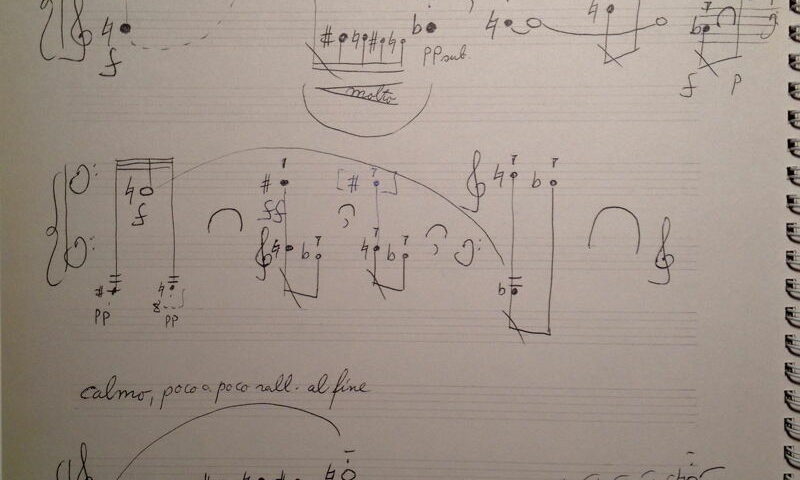 f
pp sub
f p
molto
f
ff
8
pp pp
calmo, poco a poco rall. al fine